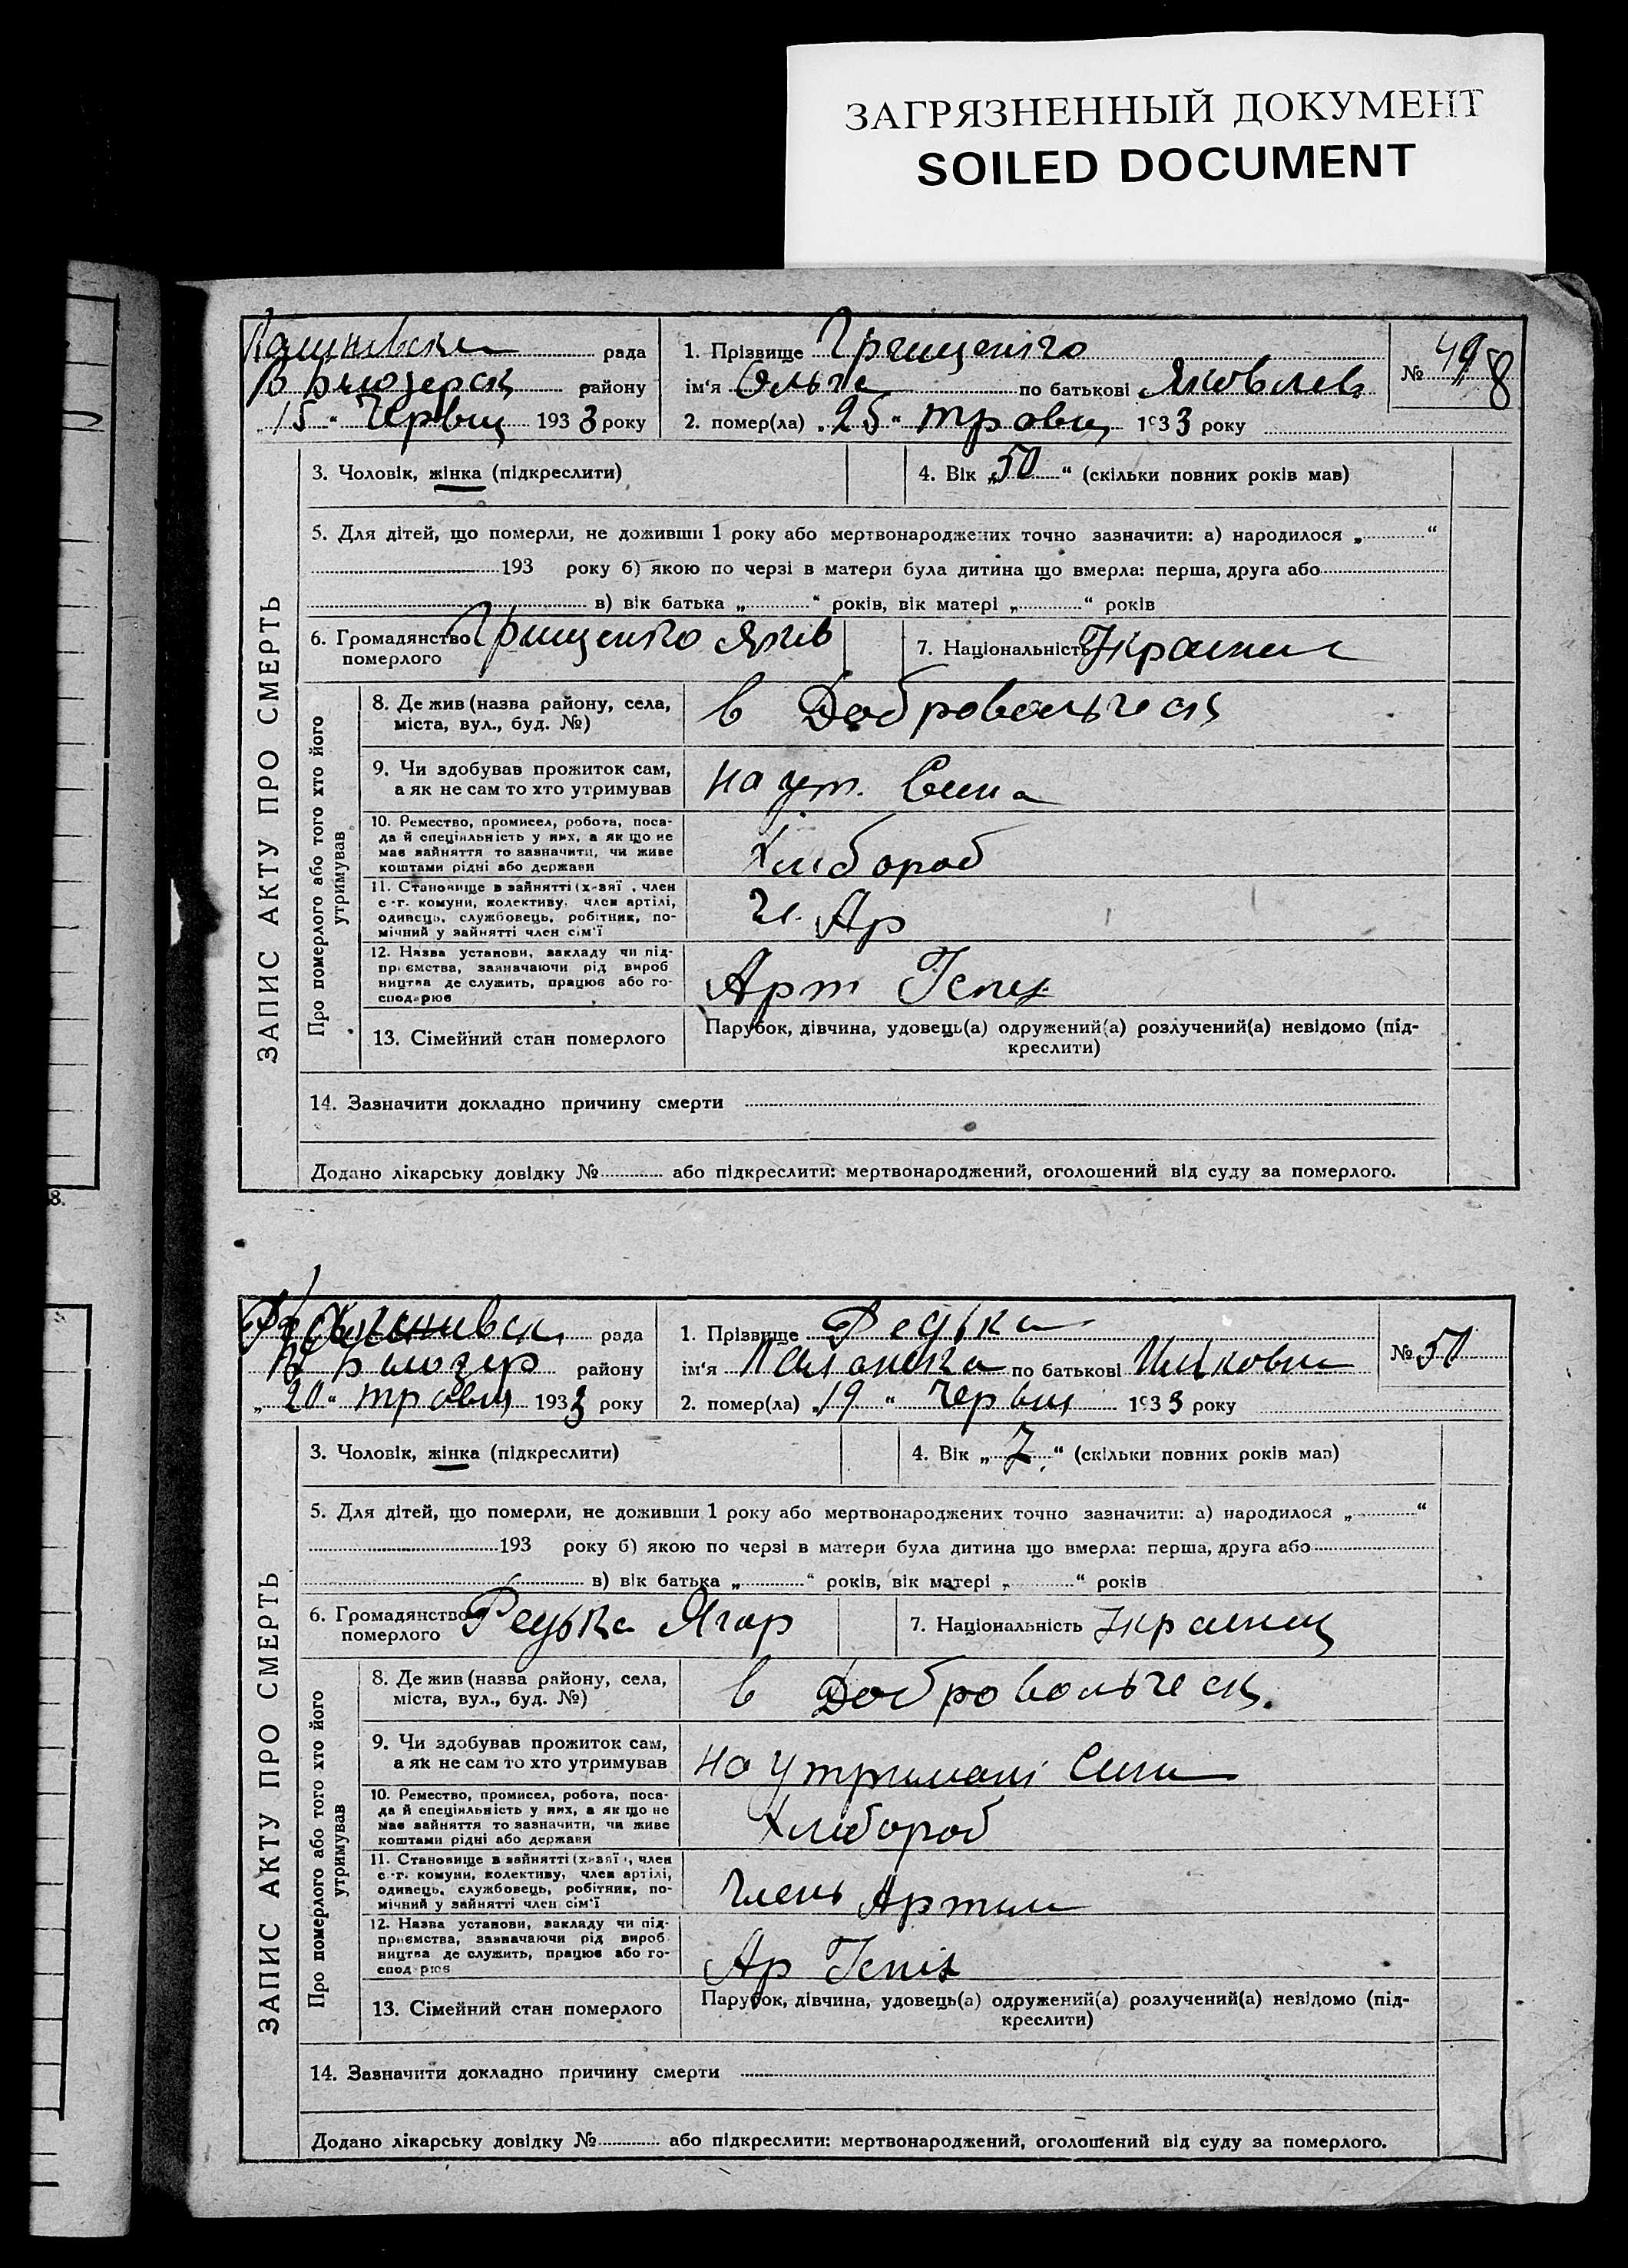 ЗАГРЯЗНЕННЫЙ ДОКУМЕНТ
SOILED DOCUMENT
рада
району
„15“ Червц 1933 року
1. Прізвище Грищенко
ім‘я Ольга по батькові Яковлев
2. помер(ла) „25“ травц 1933 року
№ 49 8
3. Чоловік, жінка (підкреслити)
4. Вік „50“ (скільки повних років мав)
5. Для дітей, що померли, не доживши 1 року або мертвонароджених точно зазначити: а) народилося „ “
193 року б) якою по черзі в матери була дитина що вмерла: перша, друга або
в) вік батька „ “ років, вік матері „ “ років
6. Громадянство померлого Грищенко Яків
7. Національність Украин
ЗАПИС АКТУ ПРО СМЕРТЬ
Про померлого або того хто його утримував
8. Де жив (назва району, села,
міста, вул., буд. №)
в Добровольческ
9. Чи здобував прожиток сам,
а як не сам то хто утримував
на ут. Сина
10. Ремество, промисел, робота, поса-
да й спеціяльність у них, а як що не
має зайняття то зазначити, чи живе
коштами рідні або держави
Хлибороб
11. Становище в зайнятті (х-зяї , член
с-г. комуни, колективу, член артілі,
одинець, службовець, робітник, по-
мічний у зайнятті член сім‘ї
Чл. Ар
12. Назва установи, закладу чи під-
приємства, зазначаючи рід вироб
ництва де служить, працює або го-
сподарює
Арт Успіх
13. Сімейний стан померлого
Парубок, дівчина, удовець(а) одружений(а) розлучений(а) невідомо (під-
креслити)
14. Зазначити докладно причину смерти
Додано лікарську довідку № або підкреслити: мертвонароджений, оголошений від суду за померлого.
8.
рада
району
„20“ травц 1933 року
1. Прізвище Редька
ім‘я по батькові
2. помер(ла) „19“ Червц 1933 року
№ 50
3. Чоловік, жінка (підкреслити)
4. Вік „7“ (скільки повних років мав)
5. Для дітей, що померли, не доживши 1 року або мертвонароджених точно зазначити: а) народилося „ “
193 року б) якою по черзі в матери була дитина що вмерла: перша, друга або
в) вік батька „ “ років, вік матері „ “ років
6. Громадянство померлого Редька Ягор
7. Національність Украинц
ЗАПИС АКТУ ПРО СМЕРТЬ
Про померлого або того хто його утримував
8. Де жив (назва району, села,
міста, вул., буд. №)
в Добровольческ.
9. Чи здобував прожиток сам,
а як не сам то хто утримував
на утримані Сина
10. Ремество, промисел, робота, поса-
да й спеціяльність у них, а як що не
має зайняття то зазначити, чи живе
коштами рідні або держави
Хлибороб
11. Становище в зайнятті (х-зяї , член
с-г. комуни, колективу, член артілі,
одинець, службовець, робітник, по-
мічний у зайнятті член сім‘ї
Члень Артили
12. Назва установи, закладу чи під-
приємства, зазначаючи рід вироб
ництва де служить, працює або го-
сподарює
Ар Успіх
13. Сімейний стан померлого
Парубок, дівчина, удовець(а) одружений(а) розлучений(а) невідомо (під-
креслити)
14. Зазначити докладно причину смерти
Додано лікарську довідку № або підкреслити: мертвонароджений, оголошений від суду за померлого.